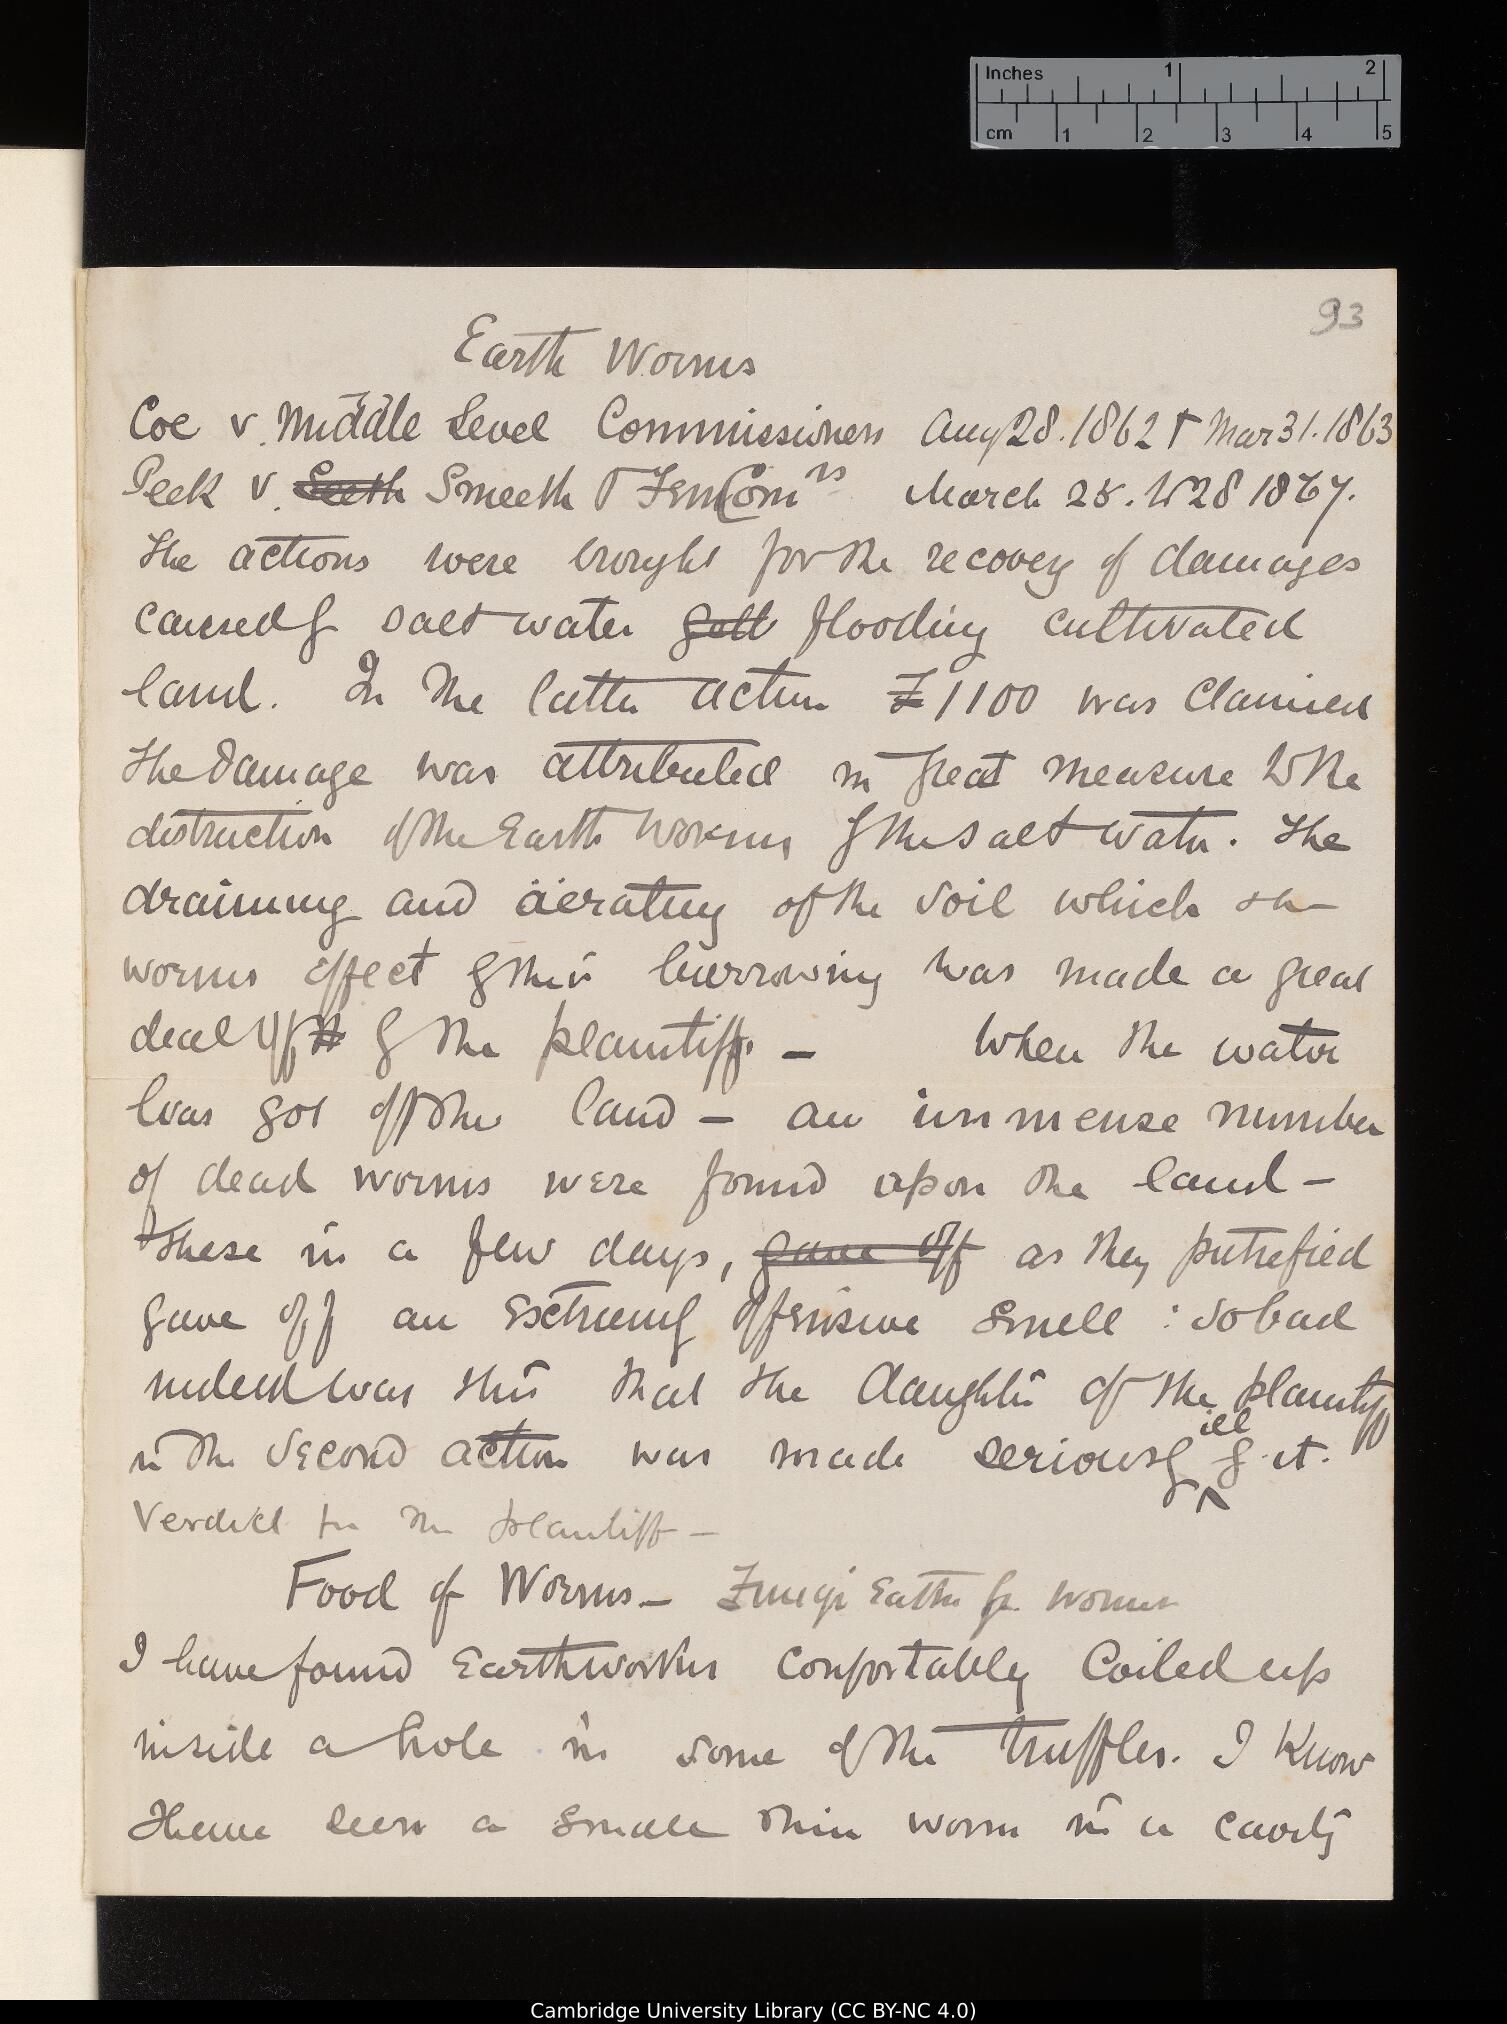 Inches 1 2
cm 1 2 3 4 5
93
Earth Worms
Coe v. Middle Level Commissioners Aug 28. 1862 & Mar 31. 1863
Peek v. Smeeth & Fen Comrs March 25. to 28 1867.
The actions were brought for the recovery of damages
caused by salt water flooding cultivated
land. In the latter action £1100 was claimed
The damage was attributed in great measure to the
destruction of the Earth worms by the salt water. The
draining and äerating of the soil which the
worms effect by their burrowing was made a great
deal of by the plaintiff. — When the water
was got off the land — an immense number
of dead worms were found upon the land —
these in a few days, gave off as they putrefied
gave off an extremely offensive smell : so bad
indeed was this that the daughter of the plaintiff
in the second action was made seriously ill by it.
Verdict for the plaintiff —
Food of Worms — Fungi eaten by worms
I have found Earthworms comfortably coiled up
inside a hole in some of the truffles. I know
I have seen a small thin worm in a cavity
Cambridge University Library (CC BY-NC 4.0)